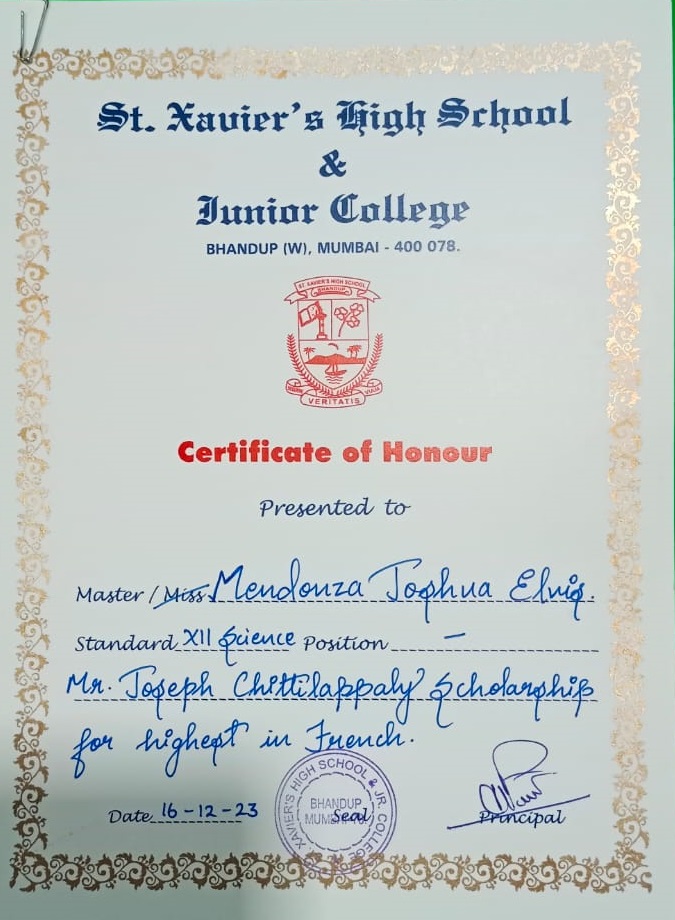 St. Xavier's High School
&
Junior College
BHANDUP (W), MUMBAI - 400 078.
ST. XAVIER'S HIGH SCHOOL
BHANDUP
VERITATIS
Certificate of Honour
Presented to
Master / Miss Mendonza Joshua Elvis.
Standard XII Science Position –
Mr. Joseph Chittilappaly Scholarship
for highest in French.
XAVIER'S HIGH SCHOOL & JR. COLLEGE
BHANDUP
MUMBAI
Date 16-12-23 Seal Principal